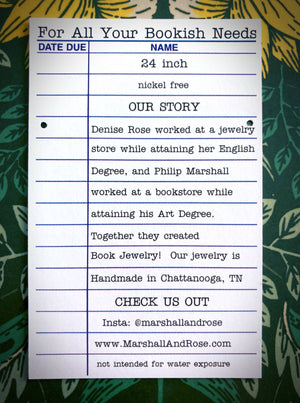 For All Your Bookish Needs
DATE DUE NAME
24 inch
nickel free
OUR STORY
Denise Rose worked at a jewelry
store while attaining her English
Degree, and Philip Marshall
worked at a bookstore while
attaining his Art Degree.
Together they created
Book Jewelry! Our jewelry is
Handmade in Chattanooga, TN
CHECK US OUT
Insta: @marshallandrose
www.MarshallAndRose.com
not intended for water exposure